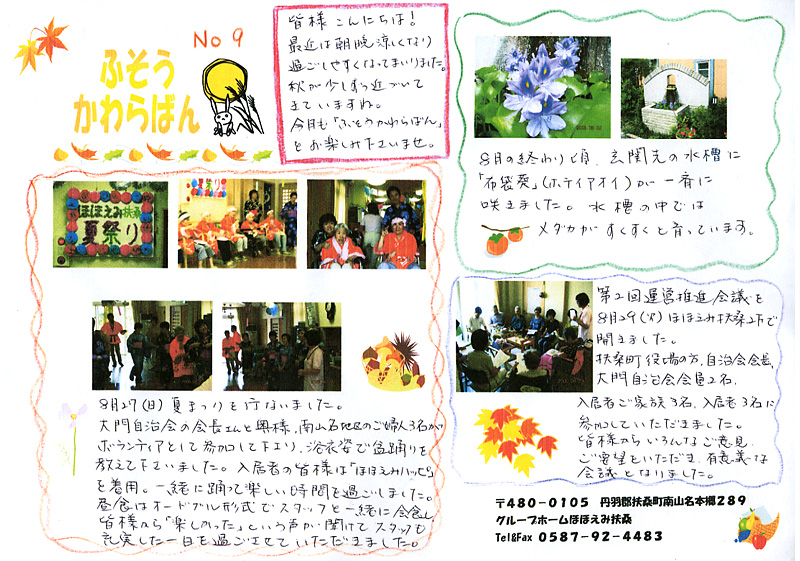 ふそう
かわらばん
No 9
皆様こんにちは!
最近は朝晩涼しくなり
過ごしやすくなってまいりました。
秋が少しずつ近づいて
きていますね。
今月も「ふそうかわらばん」
をお楽しみ下さいませ。
ほほえみ扶桑
夏祭り
8月27(日)夏まつりを行ないました。
大門自治会の会長さんと奥様、南山名地区のご婦人3名が
ボランティアとして参加して下さり、浴衣姿で盆踊りを
教えて下さいました。入居者の皆様は「ほほえみハッピ」
を着用。一緒に踊って楽しい時間を過ごしました。
昼食はオードブル形式でスタッフと一緒に会食し
皆様から「楽しかった」という声が聞けてスタッフも
充実した一日を過ごさせていただきました。
8月の終わり頃、玄関先の水槽に
「布袋葵」(ホティアオイ)が一斉に
咲きました。水槽の中では
メダカがすくすくと育っています。
第2回運営推進会議を
8月29(火)ほほえみ扶桑2Fで
開きました。
扶桑町役場の方、自治会会長、
大門自治会会員2名、
入居者ご家族3名、入居者3名に
参加していただきました。
皆様からいろんなご意見
ご要望をいただき、有意義な
会議となりました。
〒480-0105 丹羽郡扶桑町南山名本郷289
グループホームほほえみ扶桑
Tel&Fax 0587-92-4483